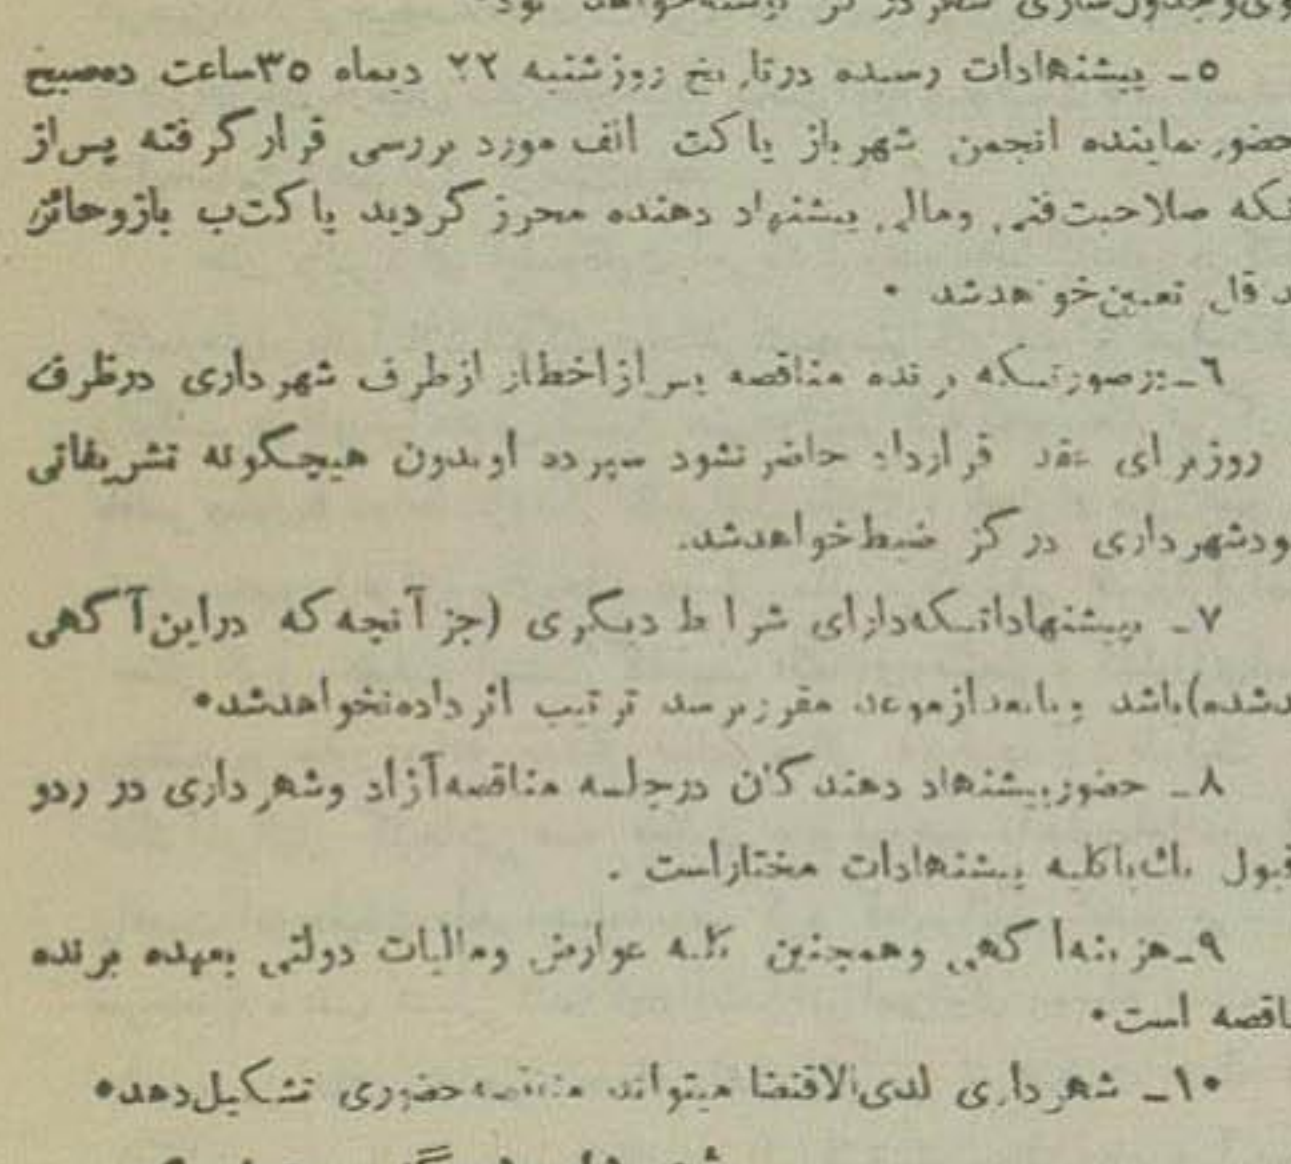 ۵ـ پیشنهادات رسیده درتاریخ روزشنبه ۲۲ دیماه ۳۵ساعت ده‌صبح
حضور نماینده انجمن شهر باز پاکت الف مورد بررسی قرارگرفته پس‌از
صلاحیت‌فنی ومالی پیشنهاد دهنده محرز گردید پاکت‌ب بازوحائز
تعیین‌خواهدشد .
۶ـ درصورتیکه برنده مناقصه پس‌ازاخطار ازطرف شهرداری درظرف
روزبرای عقد قرارداد حاضر نشود سپرده اوبدون هیچگونه تشریفاتی
شهرداری درگز ضبط‌خواهدشد.
۷ـ پیشنهاداتیکه‌دارای شرایط دیگری (جز آنچه‌که دراین‌آگهی
شده)باشد ویابعدازموعد مقرربرسد ترتیب اثر داده‌نخواهدشد.
۸ـ حضورپیشنهاد دهندگان درجلسه مناقصه‌آزاد وشهرداری در ردو
قبول یک‌یاکلیه پیشنهادات مختاراست .
۹ـ هزینه‌آگهی وهمچنین کلیه عوارض ومالیات دولتی بعهده برنده
اقصه است.
۱۰ـ شهرداری لدی‌الاقتضا میتواند مناقصه‌حضوری تشکیل‌دهد.